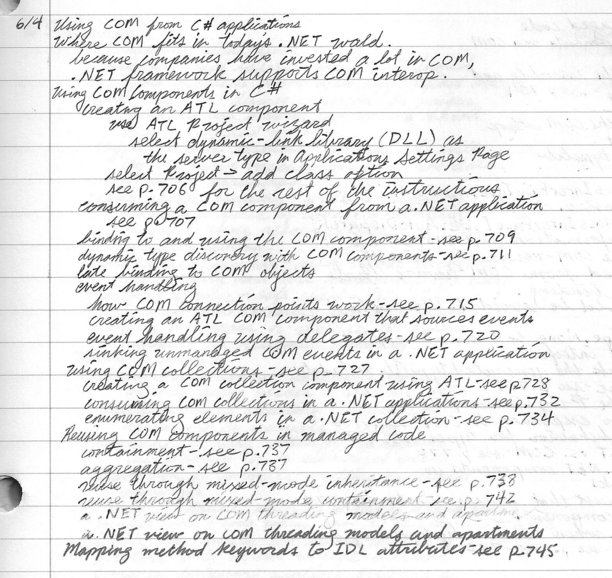 6/4 Using COM from C# applications
Where COM fits in today's .NET world.
because companies have invested a lot in COM,
.NET framework supports COM interop.
Using COM Components in C#
creating an ATL component
use ATL Project wizard
select dynamic-link library (DLL) as
the server type in Applications Settings Page
select Project → add class option
see p. 706 for the rest of the instructions
consuming a COM component from a .NET application
see p. 707
binding to and using the COM component - see p. 709
dynamic type discovery with COM components - see p. 711
late binding to COM objects
event handling
how COM connection points work - see p. 715
creating an ATL COM component that sources events
event handling using delegates - see p. 720
sinking unmanaged COM events in a .NET application
using COM collections - see p. 727
creating a COM collection component using ATL - see p 728
consuming COM collections in a .NET applications - see p. 732
enumerating elements in a .NET collection - see p. 734
Reusing COM components in managed code
containment - see p. 737
aggregation - see p. 737
reuse through mixed-mode inheritance - see p. 738
reuse through mixed-mode containment - see p. 742
a .NET view on COM threading models and apartme
a .NET view on COM threading models and apartments
Mapping method keywords to IDL attributes - see p. 745